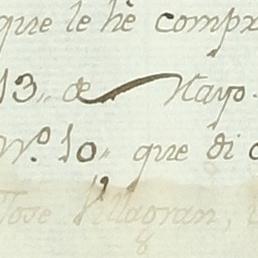 que le hè compr
13,, de Mayo.
Nº. 10,, que di c
Jose Villagran,